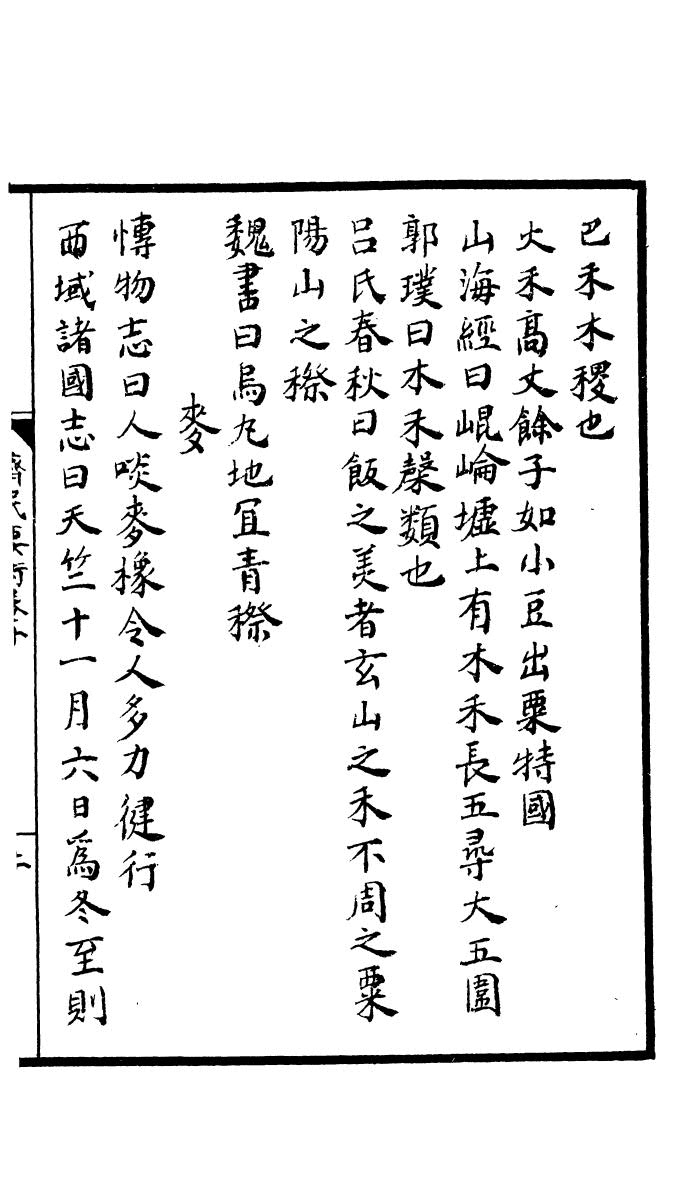 巴禾木稷也
火禾高丈餘子如小豆出粟特國
山海經曰崐崘墟上有木禾長五尋大五圍
郭璞曰木禾榖類也
呂氏春秋曰飯之美者玄山之禾不周之粟
陽山之穄
魏書曰烏丸地宜青穄
麥
博物志曰人啖麥橡令人多力健行
西域諸國志曰天竺十一月六日爲冬至則
齊民要術卷十